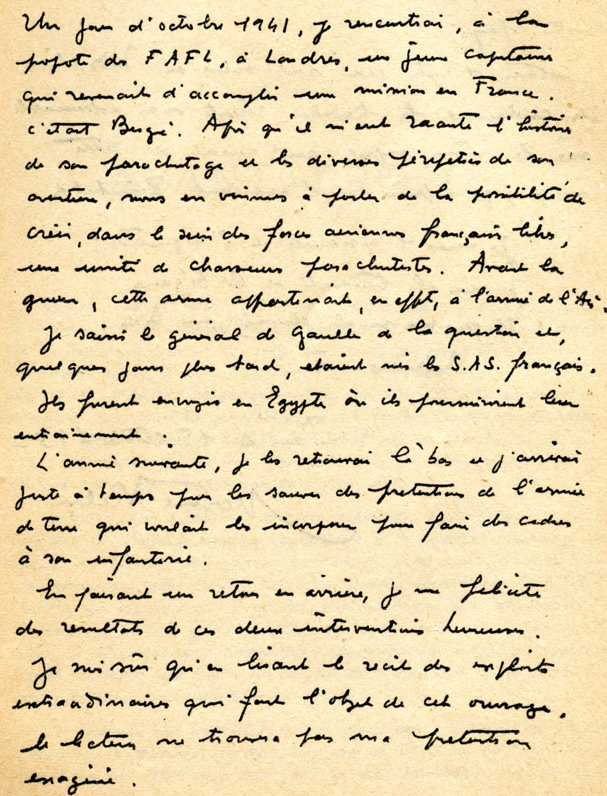 Un jour d'octobre 1941, je rencontrai, à la
popote des F A F L, à Londres, un jeune capitaine
qui revenait d'accomplir une mission en France.
c'était Bergé. Après qu'il m'eut raconté l'histoire
de son parachutage et les diverses péripéties de son
aventure, nous en vînmes à parler de la possibilité de
créer, dans le sein des forces aériennes françaises libres,
une unité de chasseurs parachutistes. Avant la
guerre, cette arme appartenait, en effet, à l'armée de l'Air.
Je saisis le général de Gaulle de la question et,
quelques jours plus tard, étaient nés les S.A.S. français.
Ils furent envoyés en Egypte où ils poursuivirent leur
entraînement.
L'année suivante, je les retrouvai là bas et j'arrivai
juste à temps pour les sauver des prétentions de l'armée
de terre qui voulait les incorporer pour faire des cadres
à son infanterie.
En faisant un retour en arrière, je me félicite
des résultats de ces deux interventions heureuses.
Je suis sûr qu'en lisant le récit des exploits
extraordinaires qui font l'objet de cet ouvrage,
le lecteur ne trouvera pas ma prétention
exagérée.